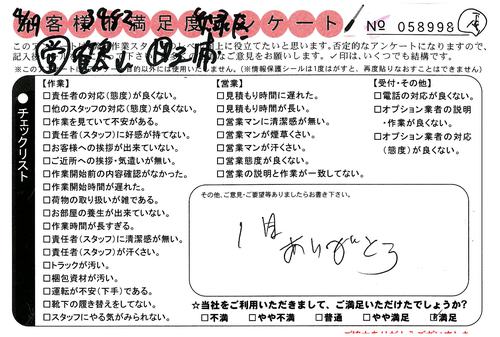 お客様満足度アンケート
№ 058998
【作業】
□責任者の対応(態度)が良くない。
□他のスタッフの対応(態度)が良くない。
□作業を見ていて不安がある。
□責任者(スタッフ)に好感が持てない。
□お客様への挨拶が出来ていない。
□ご近所への挨拶・気遣いが無い。
□作業開始前の内容確認がなかった。
□作業開始時間が遅れた。
□荷物の取り扱いが雑である。
□お部屋の養生が出来ていない。
□作業時間が長すぎる。
□責任者(スタッフ)に清潔感が無い。
□責任者(スタッフ)が汗くさい。
□トラックが汚い。
□梱包資材が汚い。
□運転が不安(下手)である。
□靴下の履き替えをしてない。
□スタッフにやる気がみられない。
【営業】
□見積もり時間に遅れた。
□見積もり時間が長い。
□営業マンに清潔感が無い。
□営業マンが煙草くさい。
□営業マンが汗くさい。
□営業態度が良くない。
□営業の説明と作業が一致してない。
【受付・その他】
□電話の対応が良くない。
□オプション業者の説明
・作業が良くない。
□オプション業者の対応
(態度)が良くない。
チェックリスト
その他、ご意見・ご要望等ありましたらお書き下さい。
1日
ありがとう
☆当社をご利用いただきまして、ご満足いただけたでしょうか?
□不満 □やや不満 □普通 □やや満足 □満足